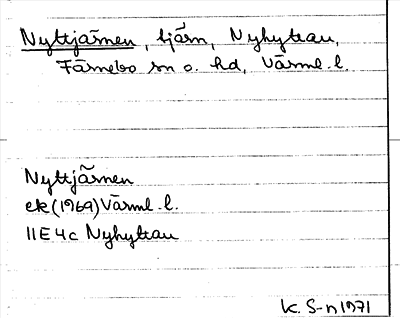 Nyttjärnen, tjärn, Nyhyttan,
Färnebo sn o. hd, Värml. l.
Nyttjärnen
ek (1969) Värml. l.
11E4c Nyhyttan
K. S-n 1971